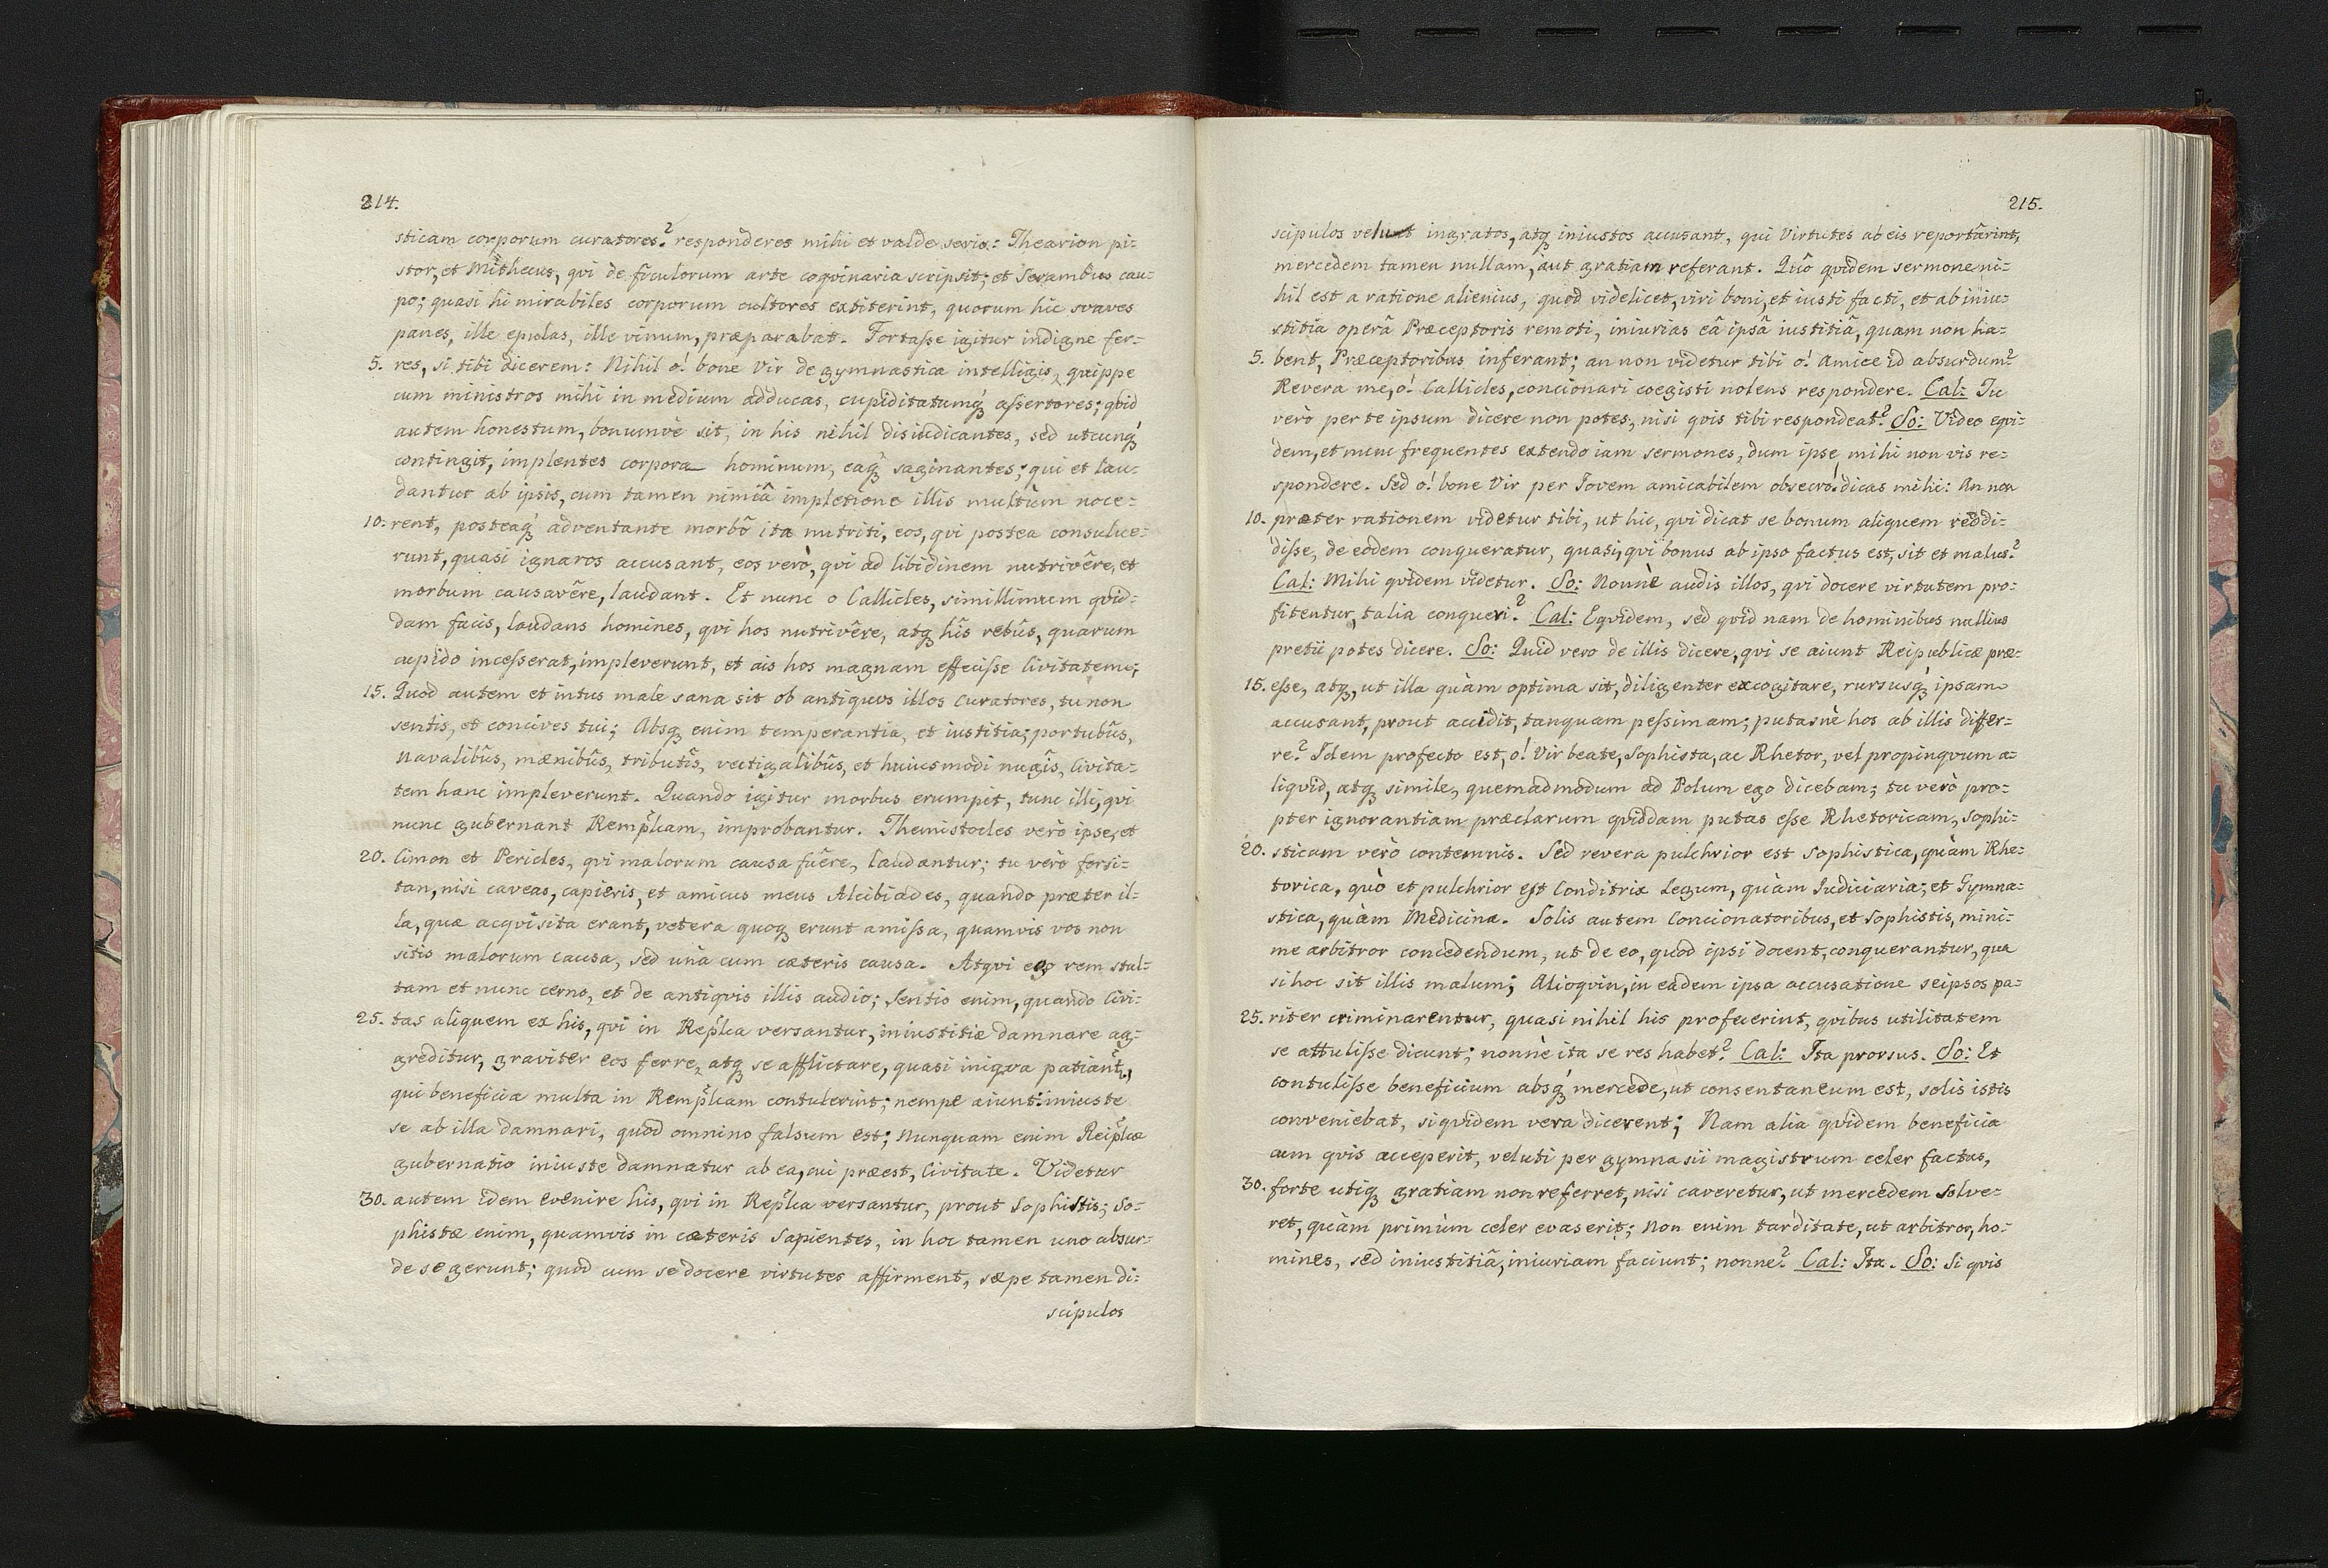 214.
sticam corporum curatores? responderes mihi et valde serio: Thearion pi-
stor, et Mithæcus, qvi de siculorum arte coqvinaria scripsit; et Sarambus cau-
po; quasi hi mirabiles corporum cultores extiterint, quorum hic svaves
panes, ille epulas, ille vinum, præparabat. Fortaſse igitur indigne fer-
5. res, si tibi dicerem: Nihil o! bone Vir de gymnastica intelligis, quippe
cum ministros mihi in medium adducas, cupiditatumq́ aſsertores; qvid
autem honestum, bonumvè sit, in his nihil disiudicantes, sed utcunq́
contingit, implentes corpora hominum, eaq́ saginantes; qui et lau-
dantur ab ipsis, cum tamen nimiâ impletione illis multùm noce-
10. rent, posteaq́ adventante morbô ita nutriti, eos, qvi postea consulue-
runt, quasi ignaros accusant, eos verò, qvi ad libidinem nutrivêre, et
morbum causavêre, laudant. Et nunc o Callicles, simillimum qvid-
dam facis, laudans homines, qvi hos nutrivêre, atq hîs rebûs, quarum
cupido inceſserat, impleverunt, et ais hos magnam effeciſse Civitatem;
15. Quod autem et intus male sana sit ob antiquos illos Curatores, tu non
sentis, et concives tui; Absq enim temperantia, et iustitia; portubûs,
navalibûs, mænibûs, tributîs, vectigalibûs, et huiusmodi nugîs, Civita-
tem hanc impleverunt. Quando igitur morbus erumpit, tunc illi, qvi
nunc gubernant Remp̃licam, improbantur. Themistocles verò ipse, et
20. Cimon et Pericles, qvi malorum causa fuêre, laudantur; tu verò forsi-
tan, nisi caveas, capieris, et amicus meus Alcibiades, quando præter il-
la, quæ acqvisita erant, vetera quoq erunt amiſsa, quamvis vos non
sitis malorum causa, sed unà cum cæteris causa. Atqvi ego rem stul-
tam et nunc cerno, et de antiqvis illis audio; Sentio enim, quando Civi-
25. tas aliquem ex his, qvi in Rep̃lca versantur, iniustitiæ damnare ag-
greditur, graviter eos ferre, atq se afflictare, quasi iniqva patiant̃,
qui beneficia multa in Remp̃lcam contulerint; nempe aiunt: iniuste
se ab illa damnari, quod omnino falsum est; Nunquam enim Reip̃lcæ
gubernatio iniuste damnatur ab ea, cui præest, Civitate. Videtur
30. autem idem evenire his, qvi in Rep̃lca versantur, prout Sophistis; So-
phistæ enim, quamvis in cæteris Sapientes, in hoc tamen uno absur-
de se gerunt; quod cum se docere virtutes affirment, sæpe tamen di-
scipulos
215.
scipulos velut ingratos, atq iniustos accusant, qui Virtutes ab eis reportârint,
mercedem tamen nullam, aut gratiam referant. Quô qvidem sermone ni-
hil est a ratione alienius, quod videlicet, viri boni, et iusti facti, et ab iniu-
stitia operâ Præceptoris remoti, iniurias eâ ipsâ iustitiâ, quam non ha-
5. bent, Præceptoribus inferant; an non videtur tibi o! Amice id absurdum?
Revera me, o! Callicles, concionari coegisti nolens respondere. Cal: Tu
verò per te ipsum dicere non potes, nisi qvis tibi respondeat? So: Video eqvi-
dem, et nunc frequentes extendo iam sermones, dum ipse mihi non vis re-
spondere. Sed o! bone Vir per Jovem amicabilem obsecro! dicas mihi: An non
10. præter rationem videtur tibi, ut hic, qvi dicat se bonum aliquem reddi-
diſse, de eodem conqueratur, quasi, qvi bonus ab ipso factus est, sit et malus?
Cal: Mihi qvidem videtur. So: Nonnè audis illos, qvi docere virtutem pro-
fitentur, talia conqueri? Cal: Eqvidem, sed qvid nam de hominibus nullius
pretii potes dicere. So: Quid vero de illis dicere, qvi se aiunt Reipublicæ præ-
15. eſse, atq, ut illa quàm optima sit, diligenter excogitare, rursusq́ ipsam
accusant, prout accidit, tanquam peſsimam; putasnè hos ab illis differ-
re? Idem profecto est, o! Vir beate, Sophista, ac Rhetor, vel propinqvum a-
liqvid, atq simile, quemadmodum ad Polum ego dicebam; tu verò pro-
pter ignorantiam præclarum qviddam putas eſse Rhetoricam, Sophi-
20. sticam verò contemnis. Sed revera pulchrior est Sophistica, quàm Rhe-
torica, quò et pulchrior est Conditrix Legum, quàm Iudiciaria; et Gymna-
stica, quàm Medicina. Solis autem Concionatoribus, et Sophistis, mini-
me arbitror concedendum, ut de eo, quod ipsi docent, conquerantur, qua
si hoc sit illis malum; Alioqvin, in eadem ipsa accusatione seipsos pa-
25. riter criminarentur, quasi nihil his profuerint, qvibus utilitatem
se attuliſse dicunt; nonnè ita se res habet? Cal: Ita prorsus. So: Et
contuliſse beneficium absq́ mercede, ut consentaneum est, solis istis
conveniebat, siqvidem vera dicerent; Nam alia qvidem beneficia
cum qvis acceperit, veluti per gymnasii magistrum celer factus,
30. forte utiq gratiam non referret, nisi caveretur, ut mercedem solve-
ret, quàm primùm celer evaserit; Non enim tarditate, ut arbitror, ho-
mines, sed iniustitiâ, iniuriam faciunt; nonne? Cal: Ita. So: Si qvis